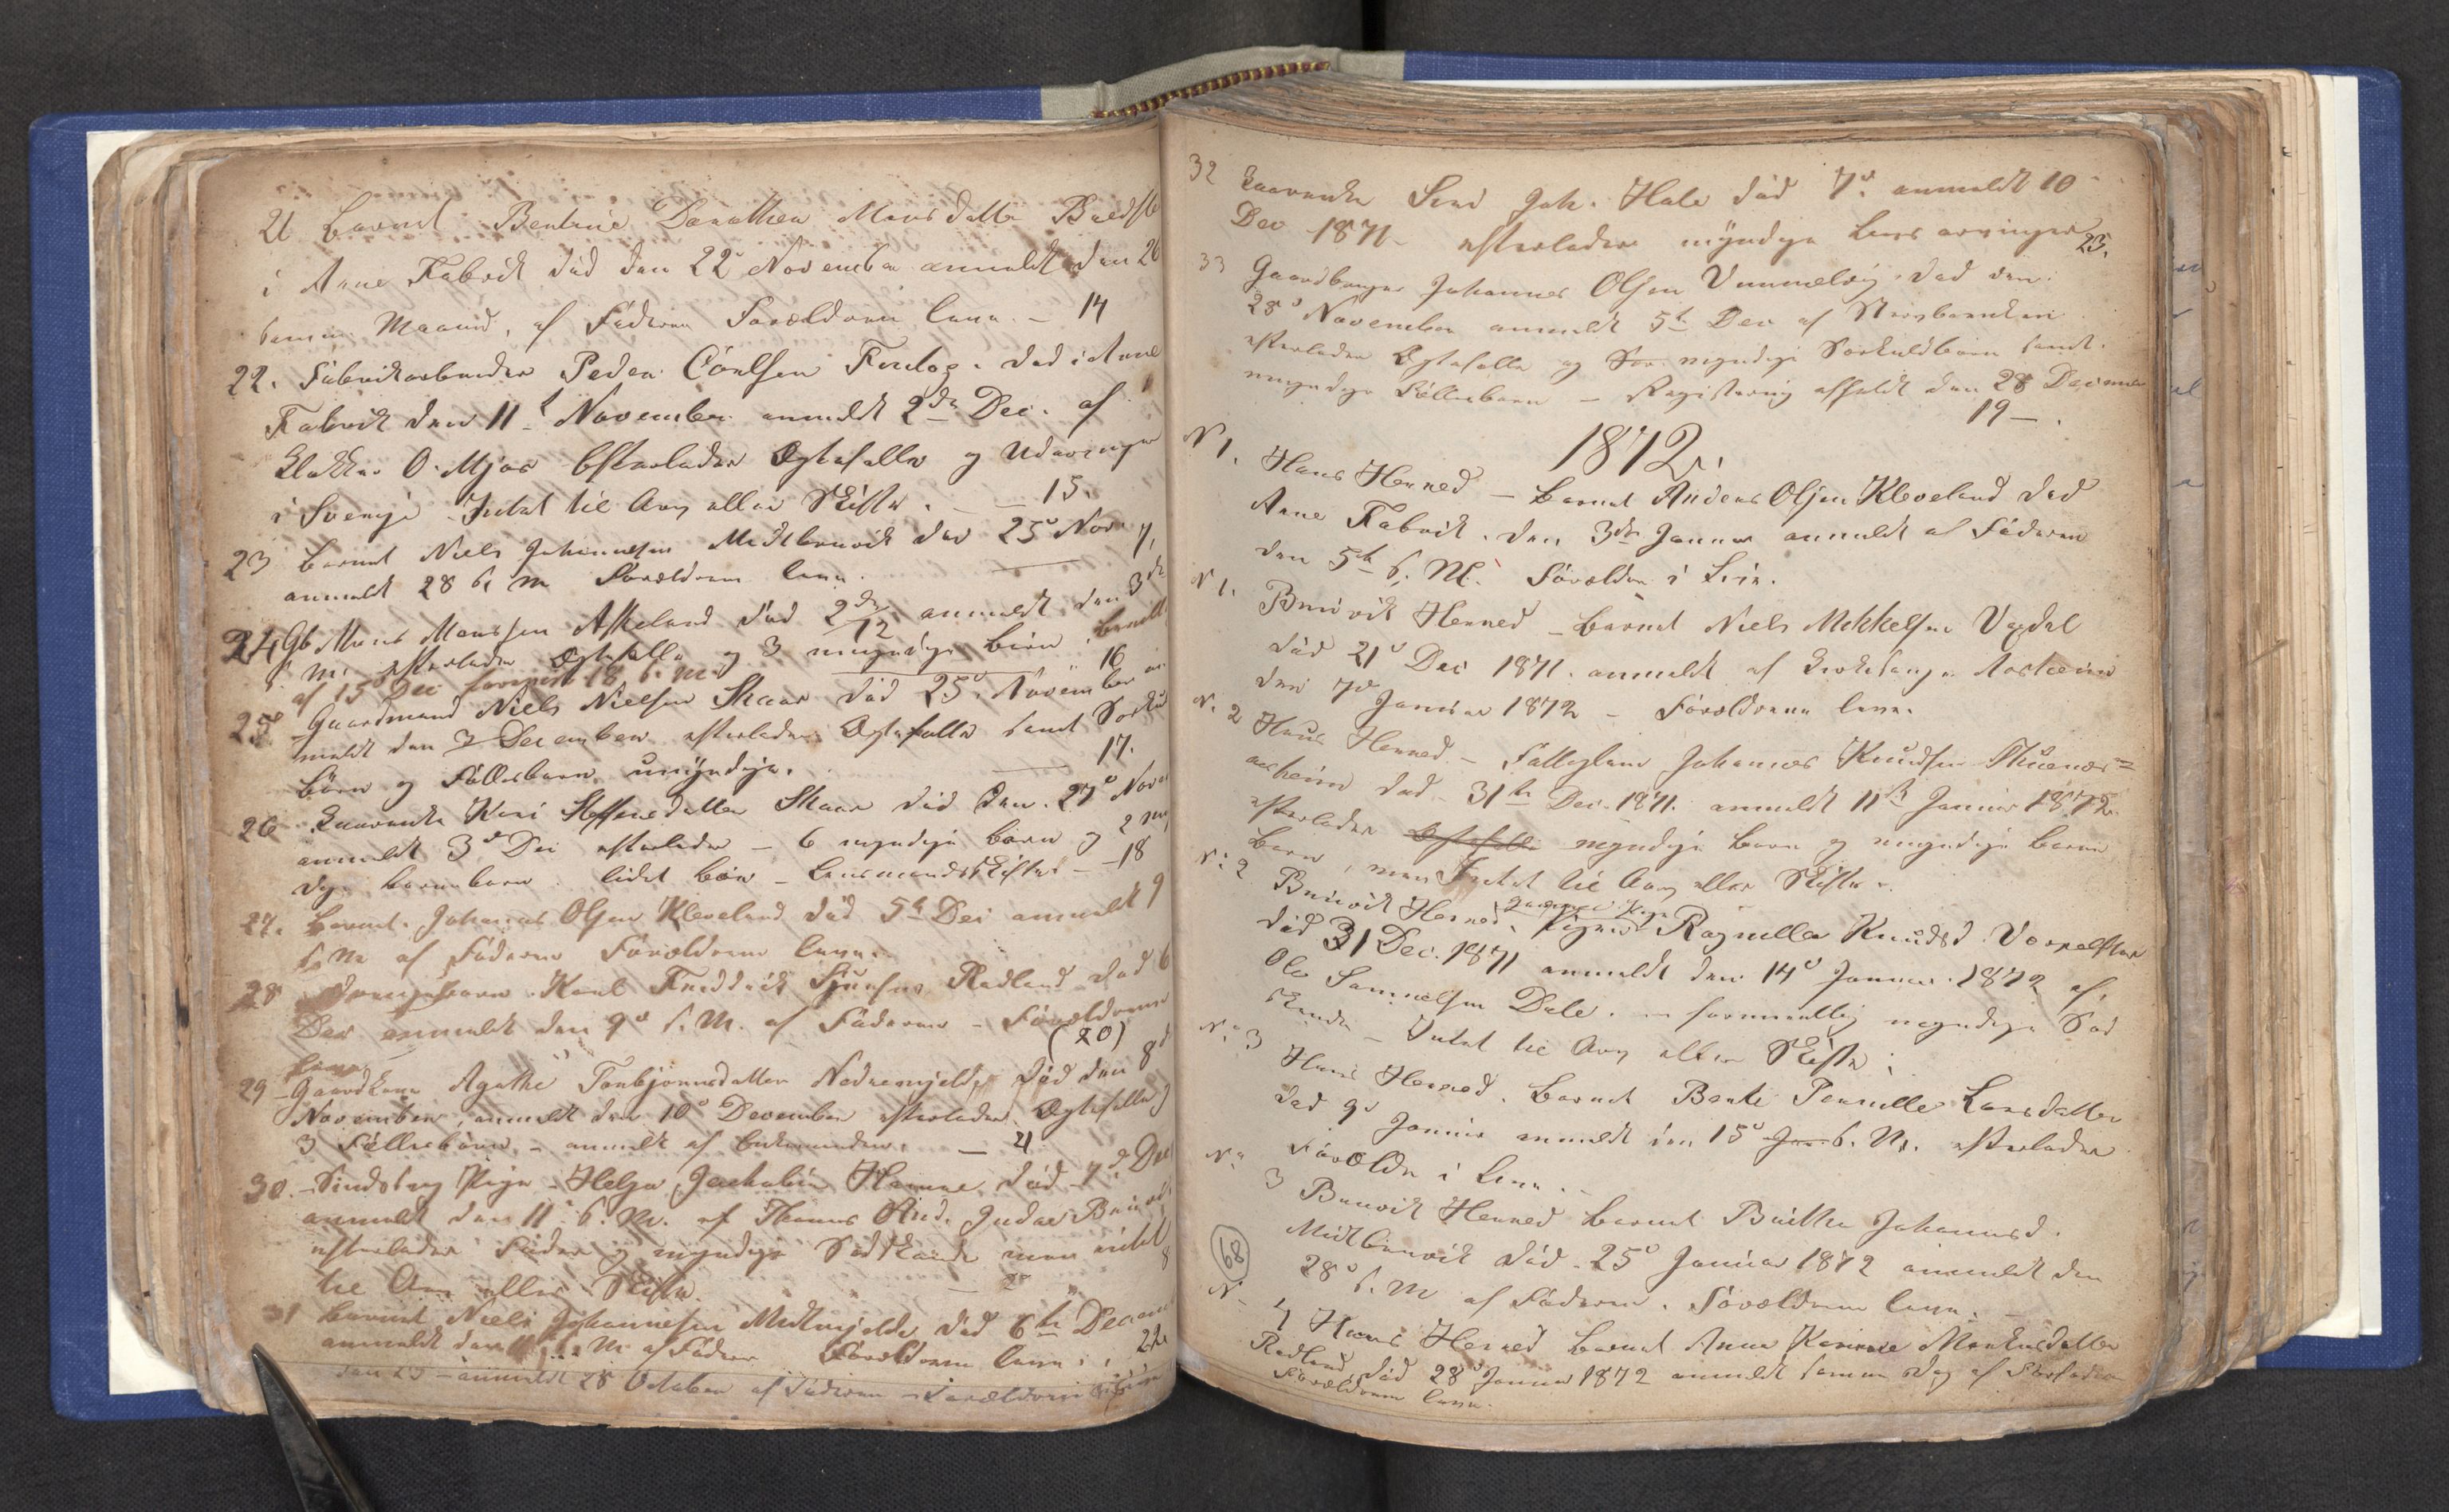 21 Barnet Bentine Dorothea Mons datter
i Arne Fabrik død den 22d November anmeldt den 26
samme Maaned, af Faderen Forældrene leve. – 14
22. Fabrikarbeider Peder Carlsen død i Arne
Fabrik den 11t November anmeldt 2den Dec. af
Klokker O. Mjøs Efterlader Ægtefælle og Udarvinger
i Sverige Intet til Arv eller Skifte. – 15.
23 Barnet Niels Johannesen Midtbrurvik død 25d Nov.
anmeldt 28 s. M Forældrene leve. 7,
24 Gb Mons Monssen Askeland død 2den/12 anmeldt den 3de
s. M. efterlader Ægtefælle og 3 umyndige Børn
af 15d Dec 18 s. M. 16
25 Gaardmand Niels Nielsen Skaar død 25d November an
meldt den 3 December efterlader Ægtefælle samt
Børn og Fællesbørn umyndige. 17.
26 Kaarenke Kari Steffensdatter Skaar død den 27d Nov
anmeldt 3d Dec efterlader – 6 myndige Børn og 2 umyn
dige Barnebørn. lidet Bo – Lensmandsskifte – 18
27. Barnet Johannes Olsen Kleveland død 5t Dec anmeldt 9
s. M af Faderen Forældrene leve.
28 Drengebarn Karl Fredrik Sjursen Redland død 6
Dec anmeldt den 9d s. M. af Faderen – Forældrene
leve (20)
29 – Gaardkone Agathe Torbjørnsdatter Nedremjelde død den 8d
November, anmeldt den 10d December efterlader Ægtefælle og
3 Fællesbørn – anmeldt af Enkemanden. – 4
30. – Sindssvag Pige Helga Jachobine død 7d Dec
anmeldt den 11 s. M. af Thomas And.
efterlader Fader og myndige Sødskende men intet
til Arv eller Skifte. 8
31 Barnet Niels Johannesen Midtmjelde død 6te Decem
anmeldt den 11 s. M. af Fader Forældrene leve. 22
den 25 – anmeldt 28 October af Faderen – Forældrene
32 Kaarenke Joh. Hole død 7d. anmeldt 10
Dec 1871 – efterlader myndige Livsarvinger 23.
33 Gaardbruger Johannes Olsen Unneland død den
28d November anmeldt 5te Dec af
efterlader Ægtefælle og myndige Særkuldbørn samt
umyndige Fællesbørn – Registrering afholdt den 28 December
19 – .
1872.
N 1. Haus Herred – Barnet Anders Olsen Kleveland død
Arne Fabrik. den 3die Januar anmeldt af Faderen
den 5te s. M. Forældre i Live.
N 1. Bruvik Herred – Barnet Niels Mikkelsen Vaxdal
død 21d Dec 1871. anmeldt af Kirkesanger
den 7de Januar 1872 – Forældrene leve.
N. 2 Haus Herred – Fattiglem Johannes Knudsen
død 31te Dec. 1871. anmeldt 11te Januar 1872.
efterlader myndige Børn og umyndige Børne
Børn, men Intet til Arv eller Skifte.
N: 2 Bruvik Herred, Ragnilla Knudsd.
død 31 Dec. 1871 anmeldt den 14d Januar 1872 af
Ole Samuelsen Dale. – formentlig myndige Sød
skende – Intet til Arv eller Skifte.
N: 3 Haus Herred. Barnet Berte Pernille Larsdatter
død 9d Januar anmeldt den 15d s. M. efterlader
Forældre i Live.
N: 3 Bruvik Herred Barnet Brithe Johannesd.
Midtbruvik død. 25d Januar 1872 anmeldt den
28d s. M af Faderen. Forældrene leve.
68
N. 4 Haus Herred Barnet Anna Karine Monsdatter
Redland, død 28d Januar 1872 anmeldt samme Dag af
Forældrene leve.